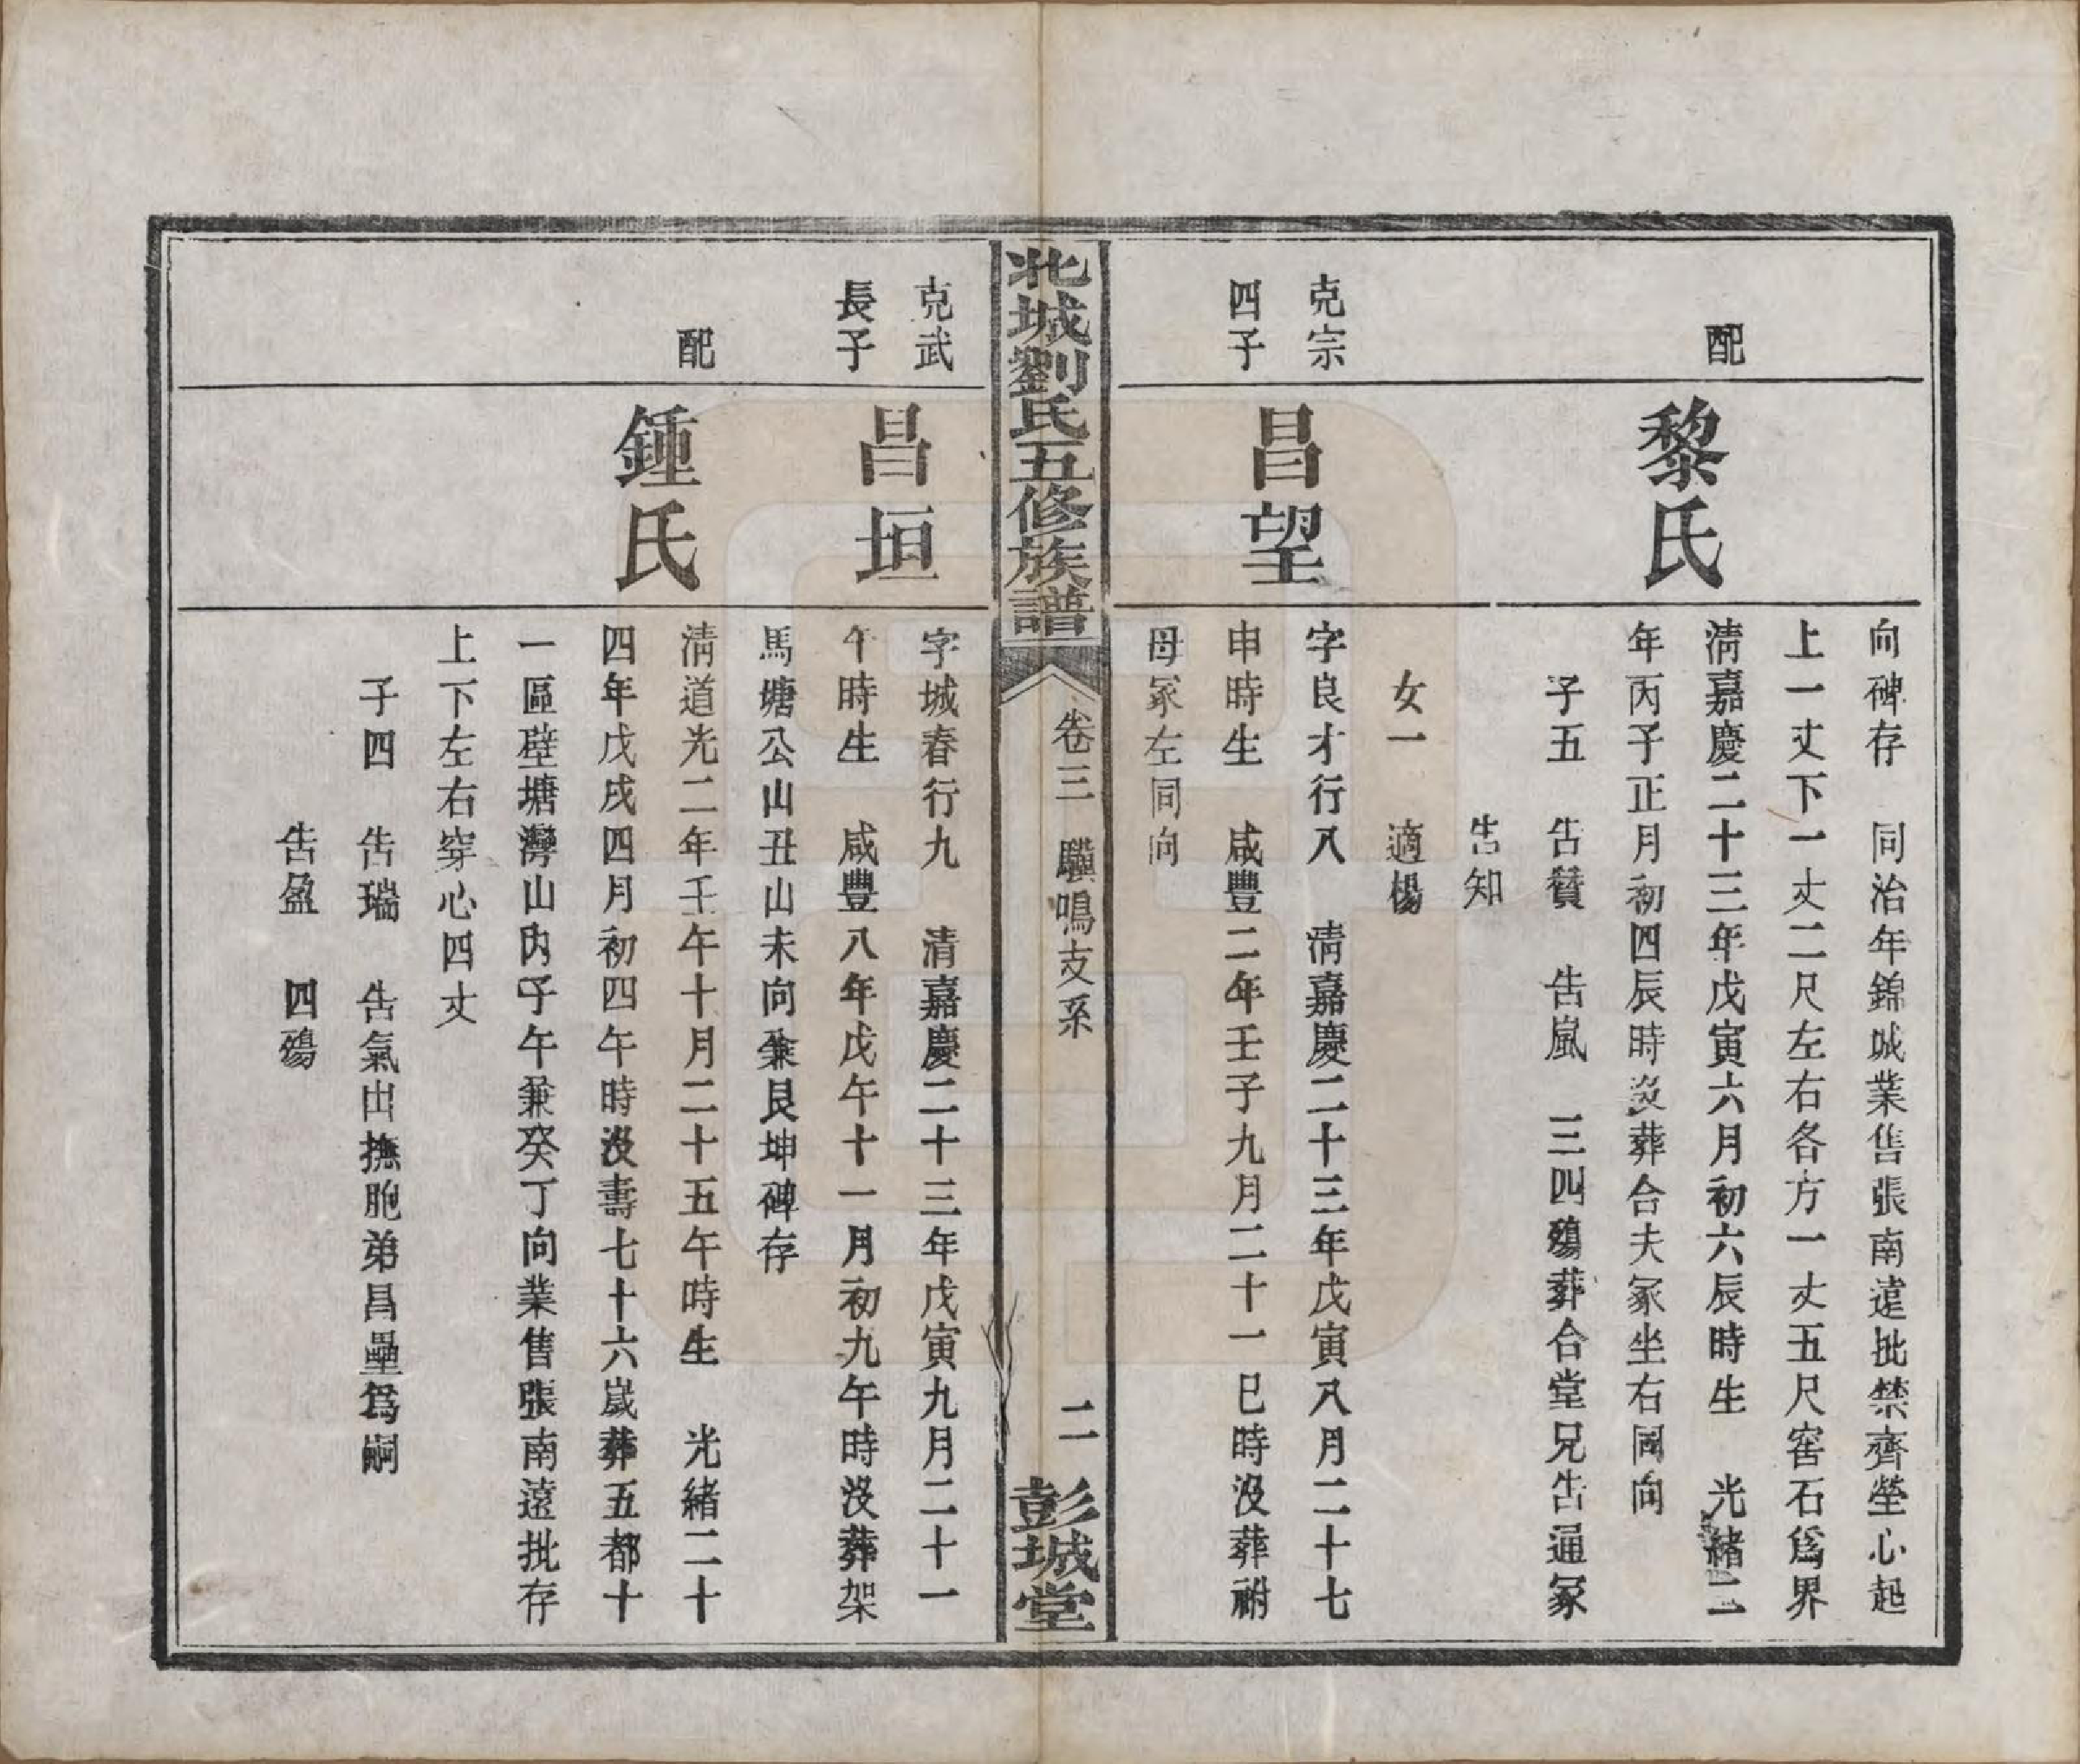 向碑存 同治年錦城業售張南遠批禁齊塋心起
上一丈下一丈二尺左右各方一丈五尺窖石爲界
配
黎氏
清嘉慶二十三年戊寅六月初六辰時生 光緒二
年丙子正月初四辰時沒葬合夫冢坐右同向
子五 告贊 告嵐 三四殤葬合堂兄告通冢
告知
女一 適楊
克宗
四子
昌望
字良才行八 清嘉慶二十三年戊寅八月二十七
申時生 咸豐二年壬子九月二十一巳時沒葬祔
母冢左同向
北城劉氏五修族譜 卷三 驥鳴支系 二 彭城堂
克武
長子
昌垣
字城春行九 清嘉慶二十三年戊寅九月二十一
午時生 咸豐八年戊午十一月初九午時沒葬架
馬塘公山丑山未向兼艮坤碑存
配
鍾氏
清道光二年壬午十月二十五午時生 光緒二十
四年戊戌四月初四午時沒壽七十六歲葬五都十
一區壁塘灣山內子午兼癸丁向業售張南遠批存
上下左右穿心四丈
子四 告瑞 告氣出撫胞弟昌壘爲嗣
告盈 四殤